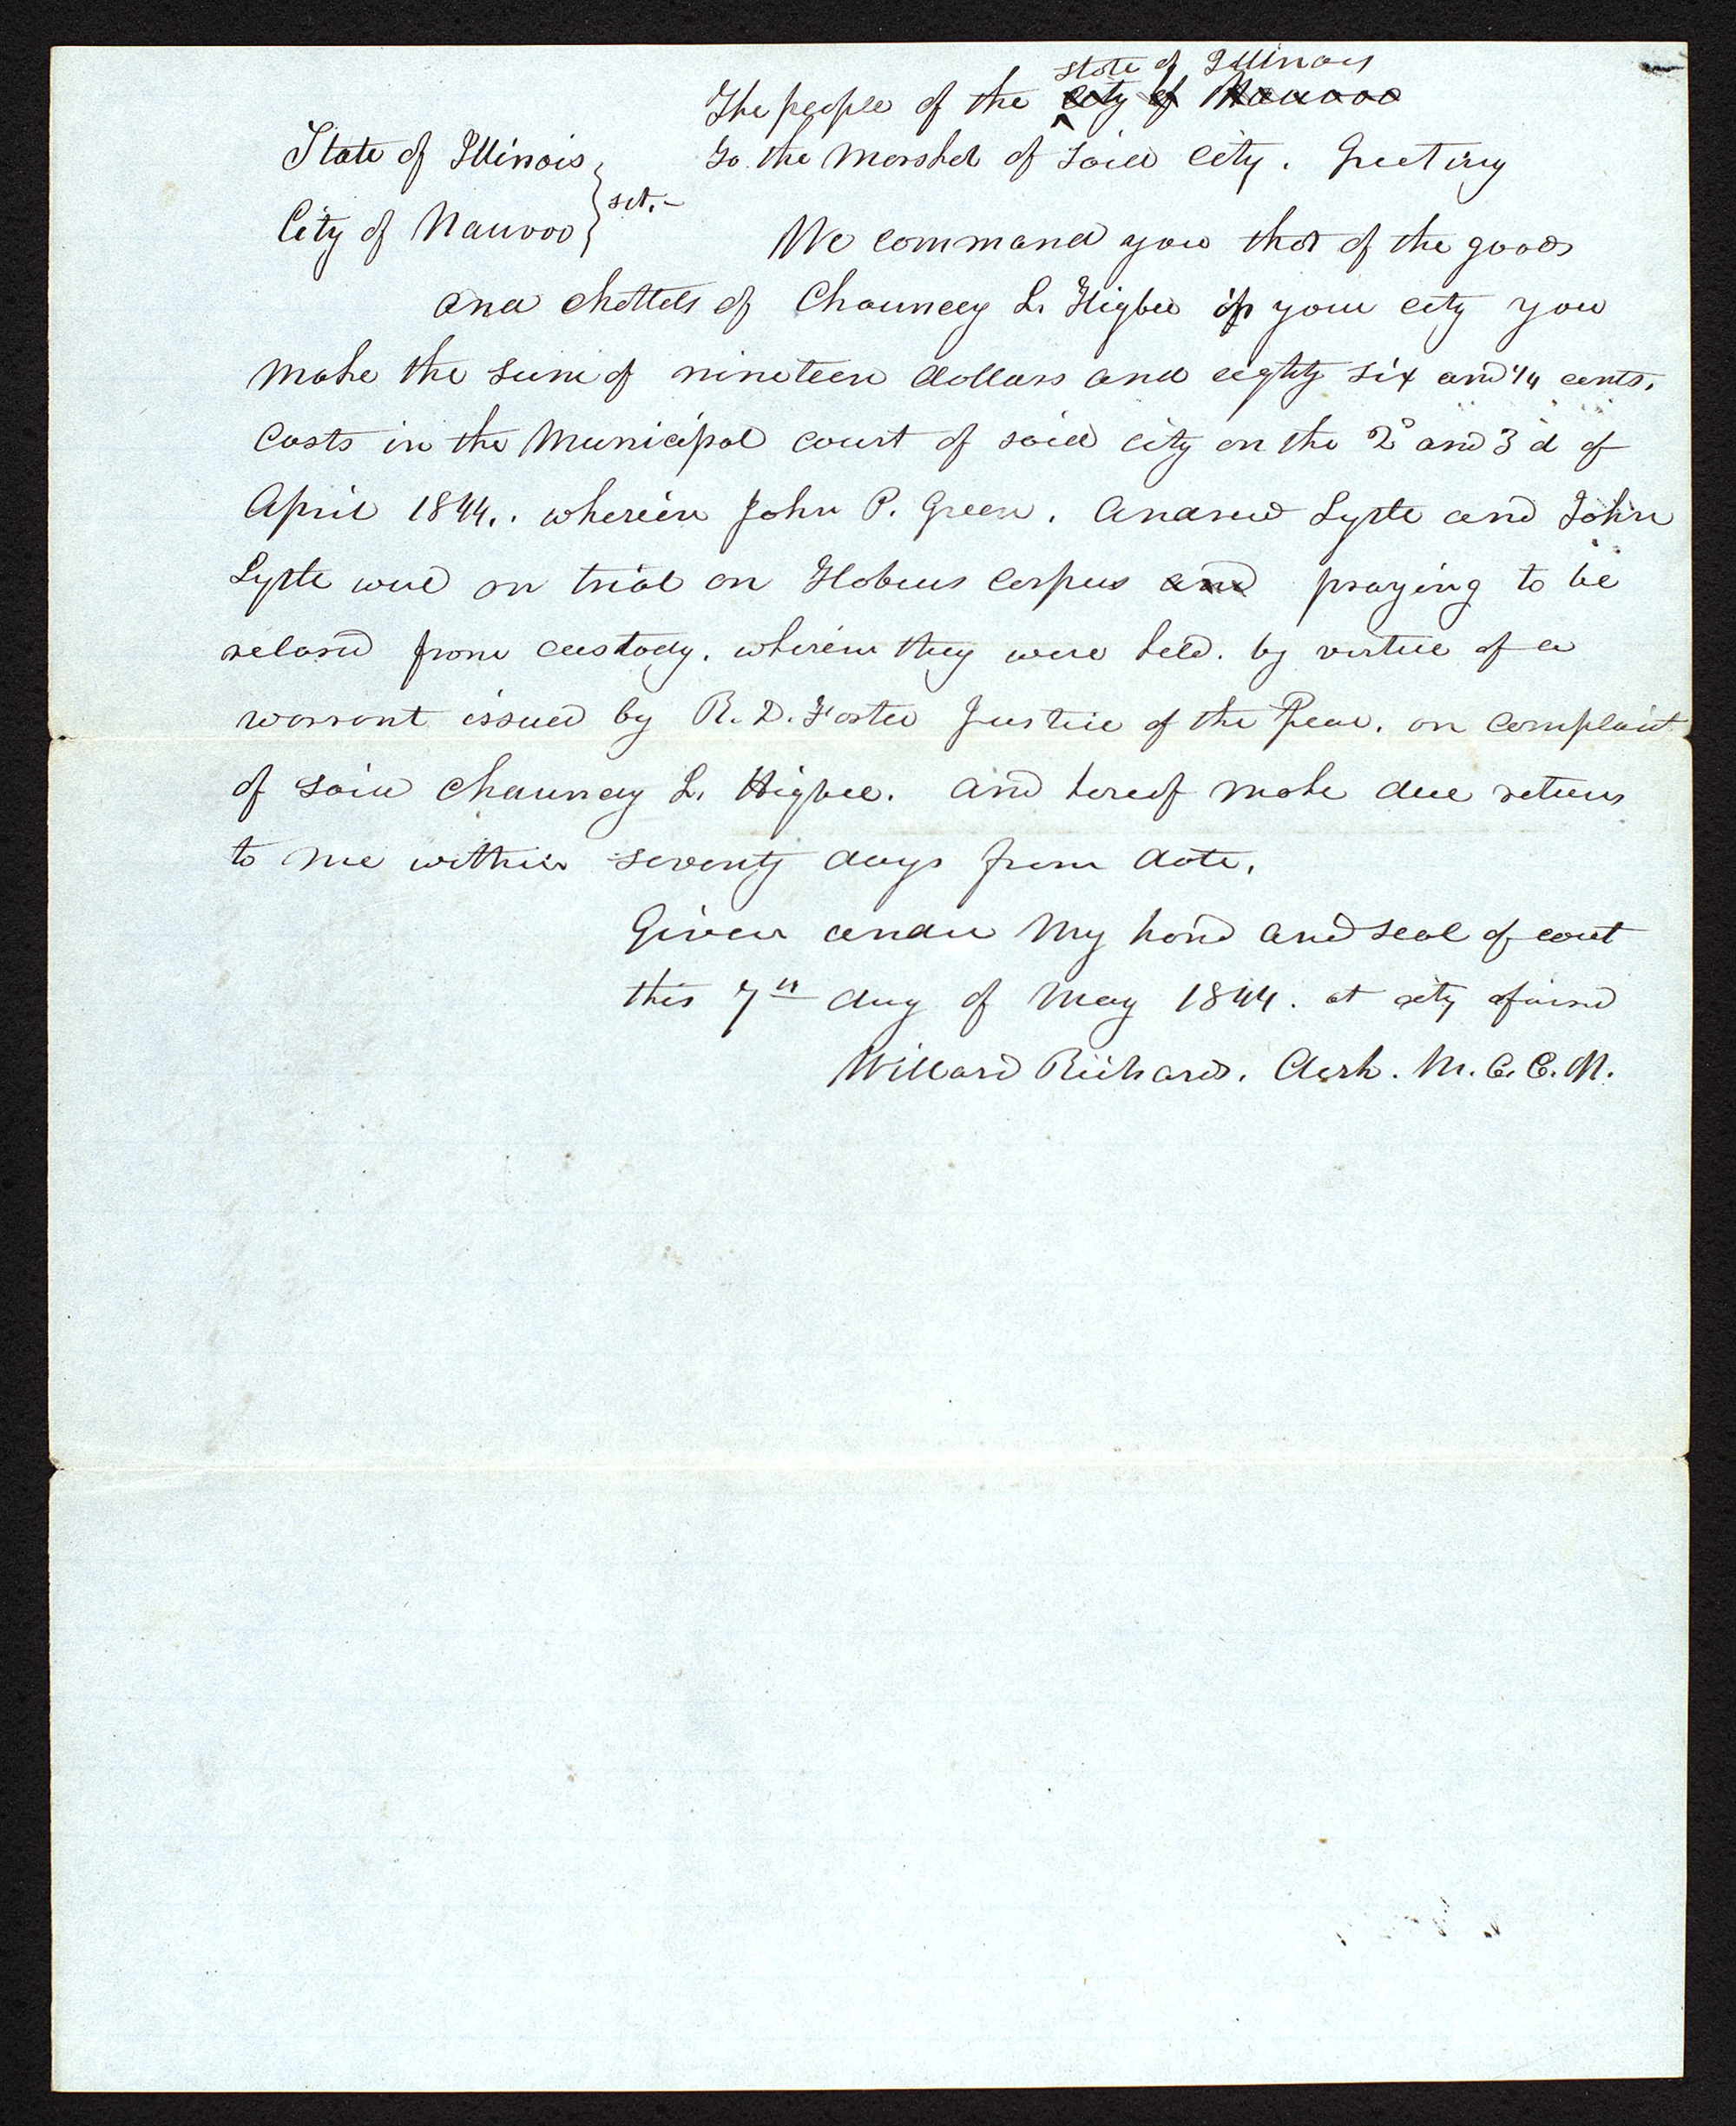 state of Illinois
The people of the city of Nauvoo
State of Illinois
To the Marshal of said City. Greeting
sct.-
City of Nauvoo
We command you that of the goods
and chattels of Chauncey L. Higbee of your city you
make the sum of nineteen dollars and eighty six and 1/4 cents.
Costs in the Municipal Court of said city on the 2d and 3d of
April 1844.. wherein John P. Green. Andrew Lytle and John
Lytle were on trial on Habeus Corpus and praying to be
relased from custody. wherein they were held. by virtue of a
warrant issued by R. D. Foster Justice of the Peace. on complaint
of said Chauncey L. Higbee. and hereof make due return
to me within seventy days from date.
Given under my hand and seal of court
this 7th day of May 1844. at city
Willard Richards. Clerk. M. C. C. N.